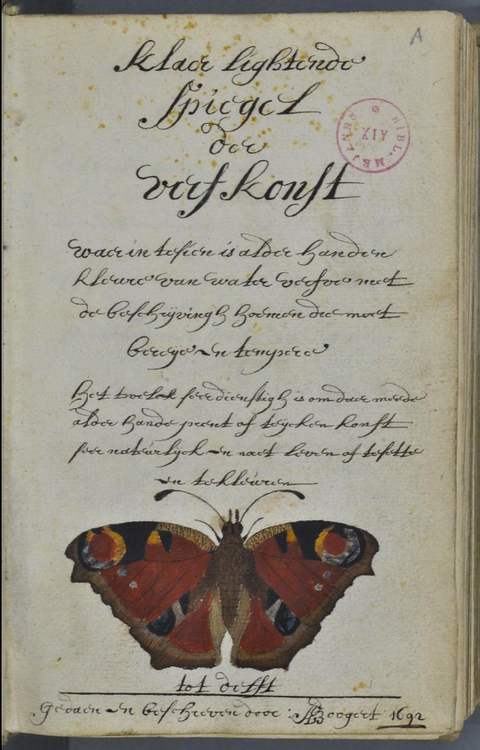 A
klaer lightende
spiegel
der
verfkonst
BIBL. MEJANES
XIX
waer in te sien is alder handen
kleure van water verfve met
de beschrijvingh hoemen die moet
bereyen en tempere
Het welck seer dienstigh is om daer meede
alder hande prent of teycken konst
seer natuerlyck en naer leven of tesette
en te kleuren
tot delft
Gedaen en beschreven door: ABoogert 1692